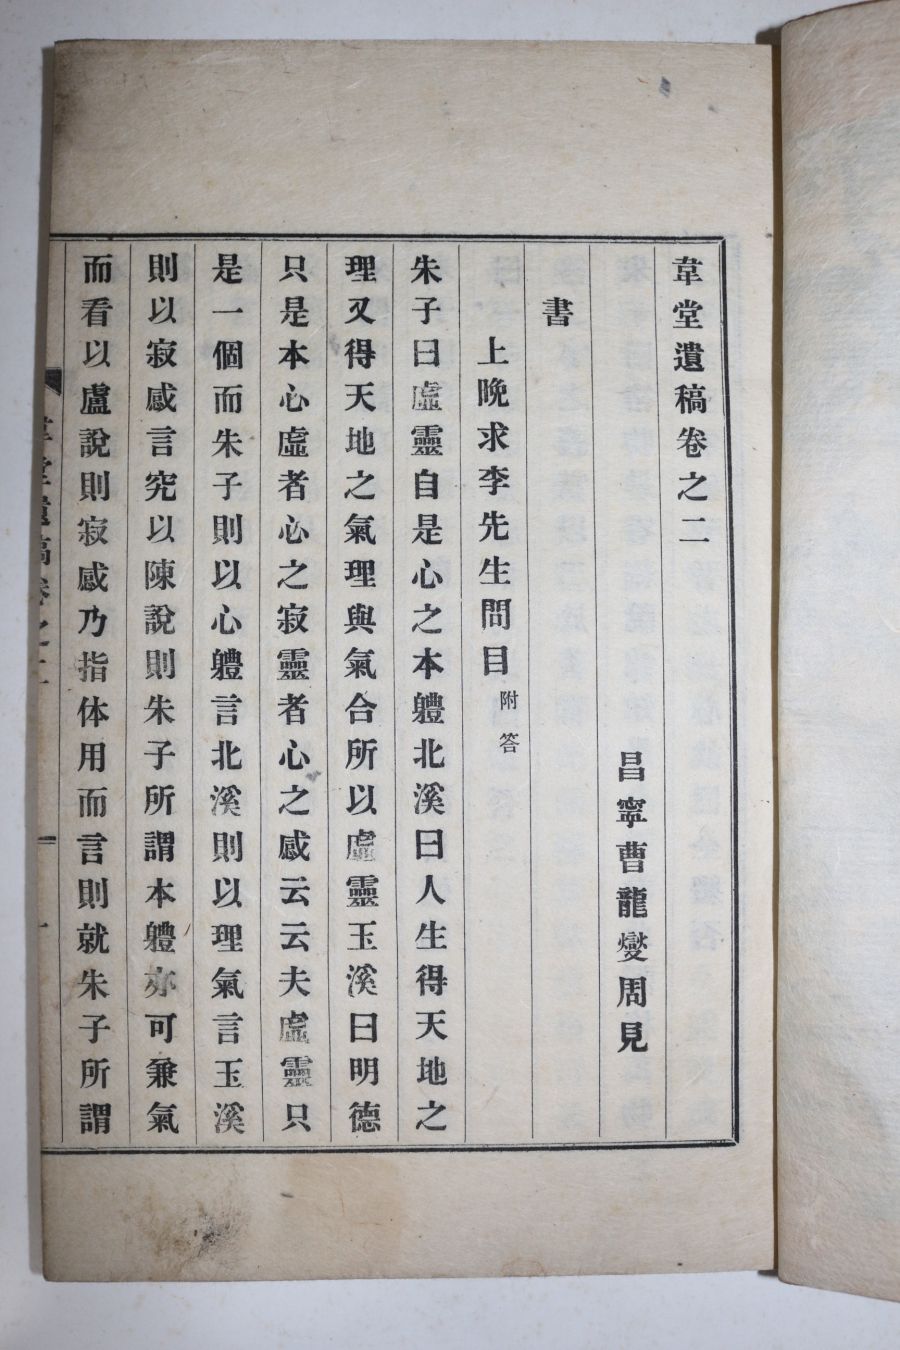 韋堂遺稿卷之二
昌寧曹龍燮周見
書
上晚求李先生問目附答
朱子曰虛靈自是心之本軆北溪曰人生得天地之
理又得天地之氣理與氣合所以虛靈玉溪曰明德
只是本心虛者心之寂靈者心之感云云夫虛靈只
是一個而朱子則以心軆言北溪則以理氣言玉溪
則以寂感言究以陳說則朱子所謂本軆亦可兼氣
而看以盧說則寂感乃指体用而言則就朱子所謂
韋堂遺稿卷之二
一